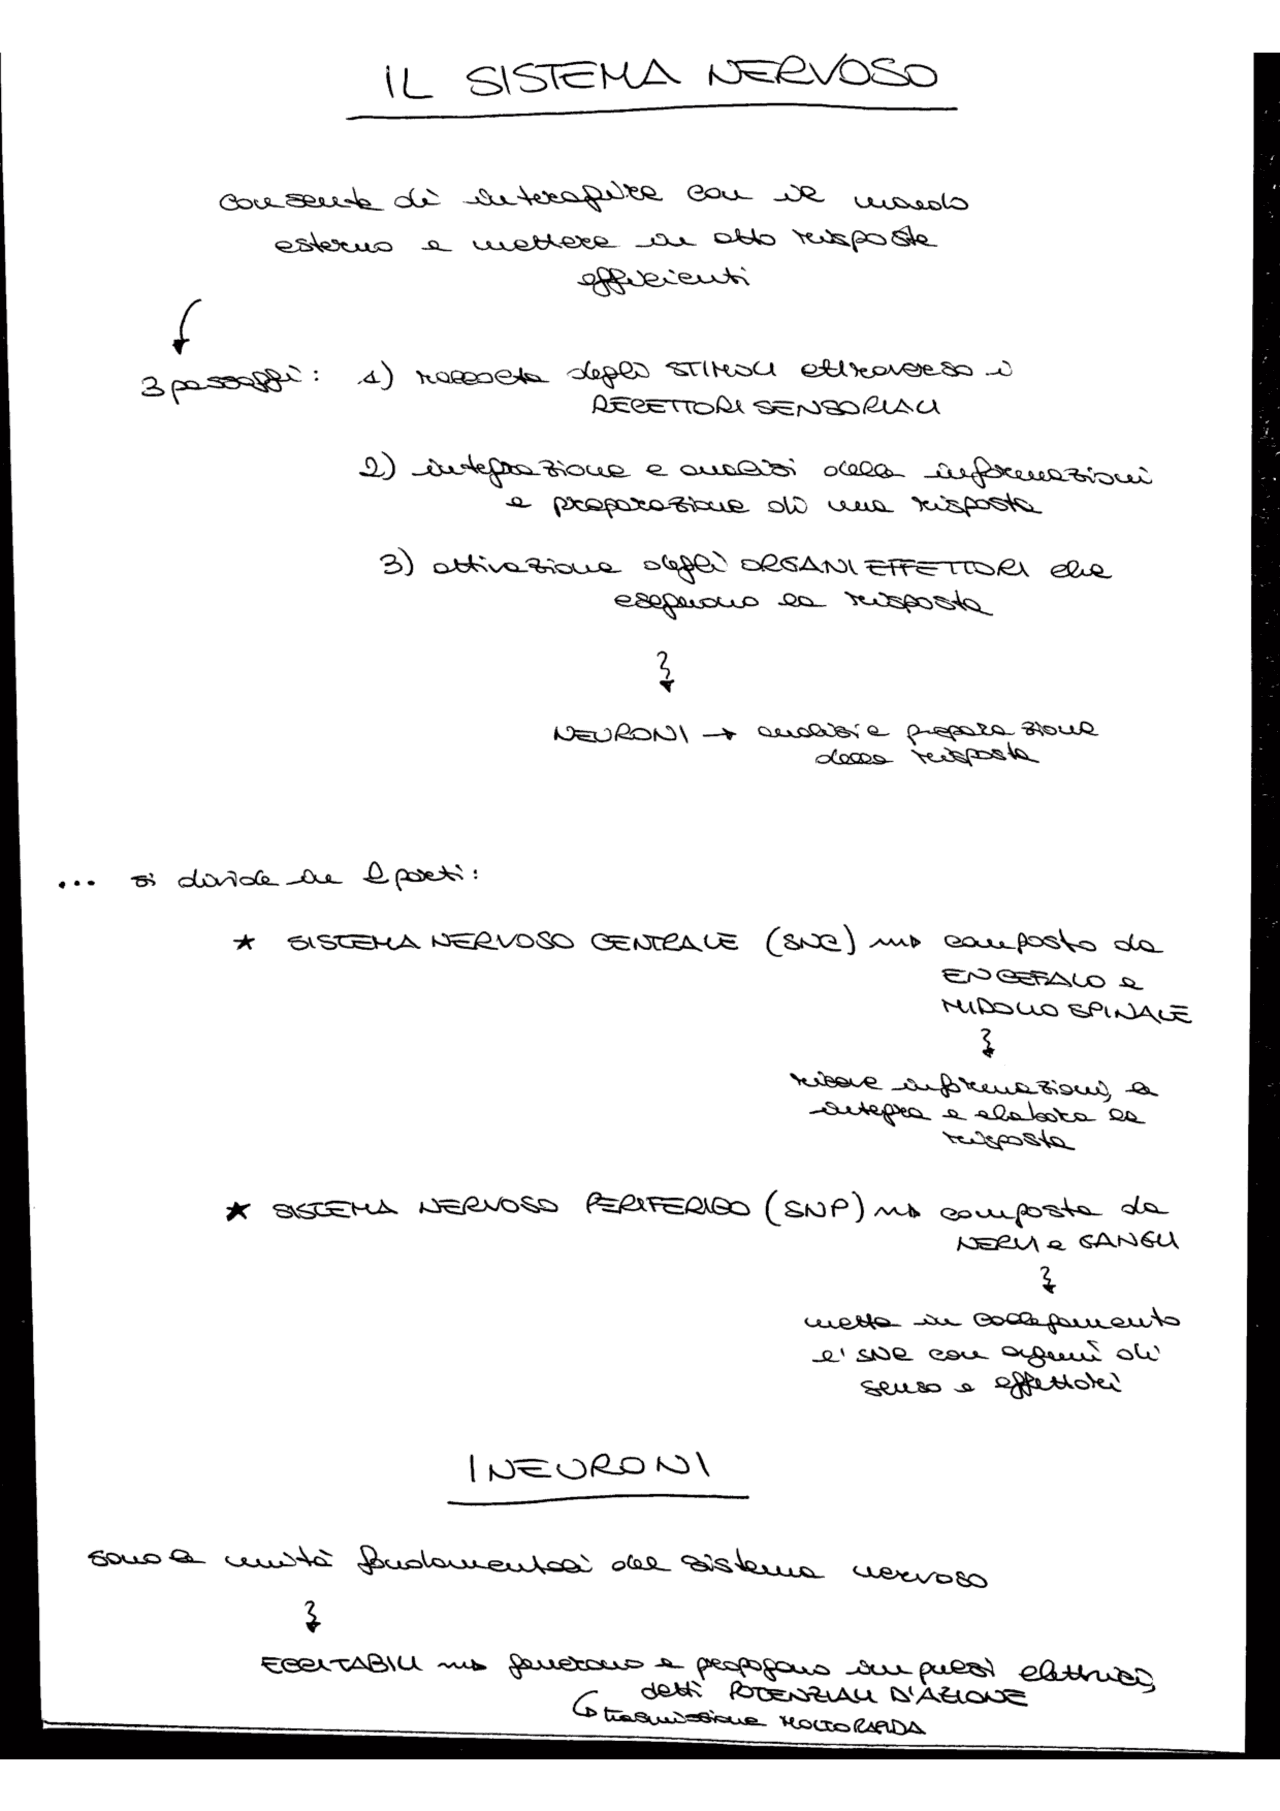 IL SISTEMA NERVOSO
consente di interagire con il mondo
esterno e mettere in atto risposte
efficienti
3 passaggi: 1) raccolta degli STIMOLI attraverso i
RECETTORI SENSORIALI
2) integrazione e analisi delle informazioni
e preparazione di una risposta
3) attivazione degli ORGANI EFFETTORI che
eseguono la risposta
NEURONI → analisi e preparazione
della risposta
... si divide in 2 parti:
★ SISTEMA NERVOSO CENTRALE (SNC) → composto da
ENCEFALO e
MIDOLLO SPINALE
riceve informazioni, le
integra e elabora la
risposta
★ SISTEMA NERVOSO PERIFERICO (SNP) → composto da
NERVI e GANGLI
mette in collegamento
l'SNC con organi di
senso e effettori
I NEURONI
sono le unità fondamentali del sistema nervoso
ECCITABILI → generano e propagano impulsi elettrici,
detti POTENZIALI D'AZIONE
↳ trasmissione MOLTO RAPIDA